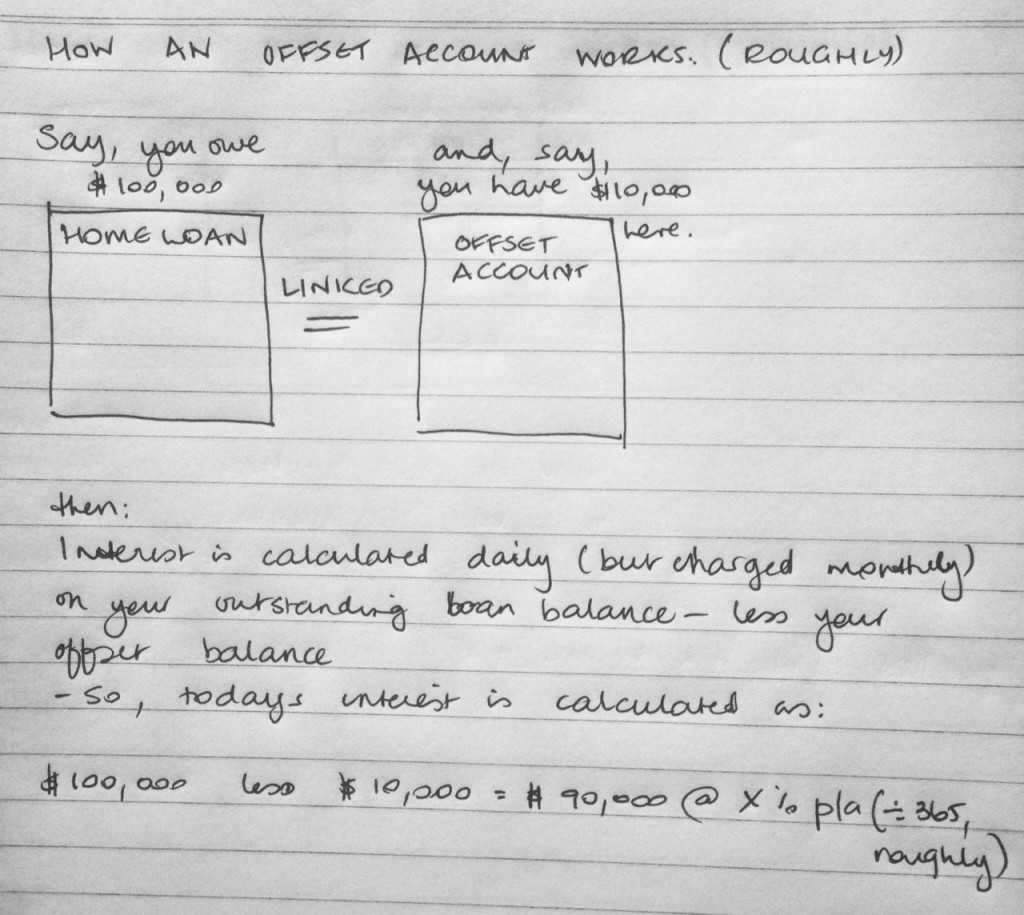 HOW AN OFFSET ACCOUNT WORKS. (ROUGHLY)
Say, you owe
$100,000
and, say,
you have $10,000
here.
HOME LOAN
LINKED
OFFSET
ACCOUNT
then:
Interest is calculated daily (but charged monthly)
on your outstanding loan balance – less your
offset balance
- So, todays interest is calculated as:
$100,000 less $10,000 = $90,000 @ X% p/a (÷365,
roughly)